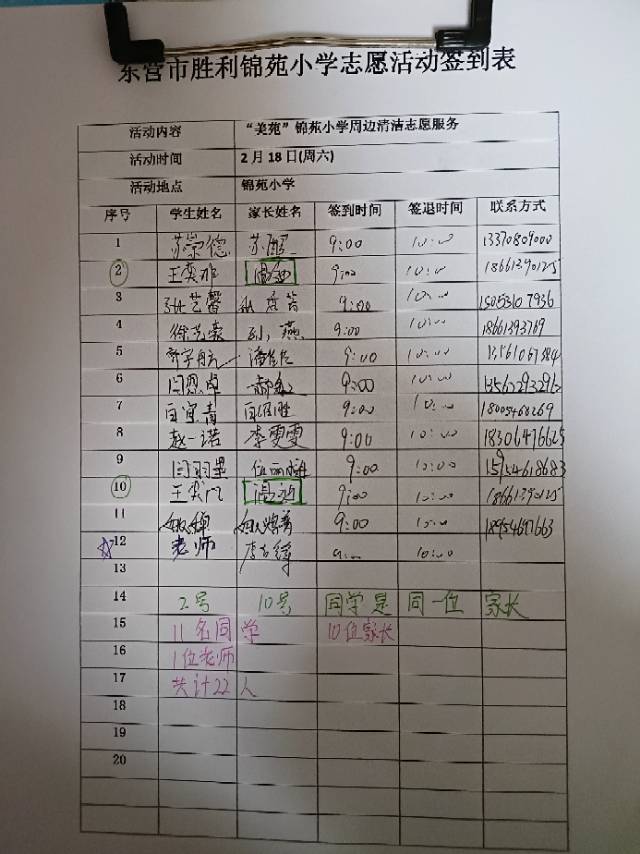 东营市胜利锦苑小学志愿活动签到表
活动内容 “美苑”锦苑小学周边清洁志愿服务
活动时间 2月18日(周六)
活动地点 锦苑小学
序号 学生姓名 家长姓名 签到时间 签退时间 联系方式
1 苏崇德 苏 9:00 10:00 13370809000
2 王奕 9:00 10:00 18661390125
3 张艺馨 9:00 10:00 15053107936
4 徐艺 孙燕 9:00 10:00 18661393769
5 潘 9:00 10:00 13561067384
6 闫恩卓 郝 9:00 10:00
7 9:00 10:00 18005468269
8 赵一诺 李雯雯 9:00 10:00 18306476625
9 闫羽墨 9:00 10:00 15954618683
10 王奕 9:00 10:00 18661390125
11 9:00 10:00 18954691663
12 老师 9:00 10:00
13
14 2号 10号 同学是 同一位 家长
15 11名同学 10位家长
16 1位老师
17 共计22人
18
19
20